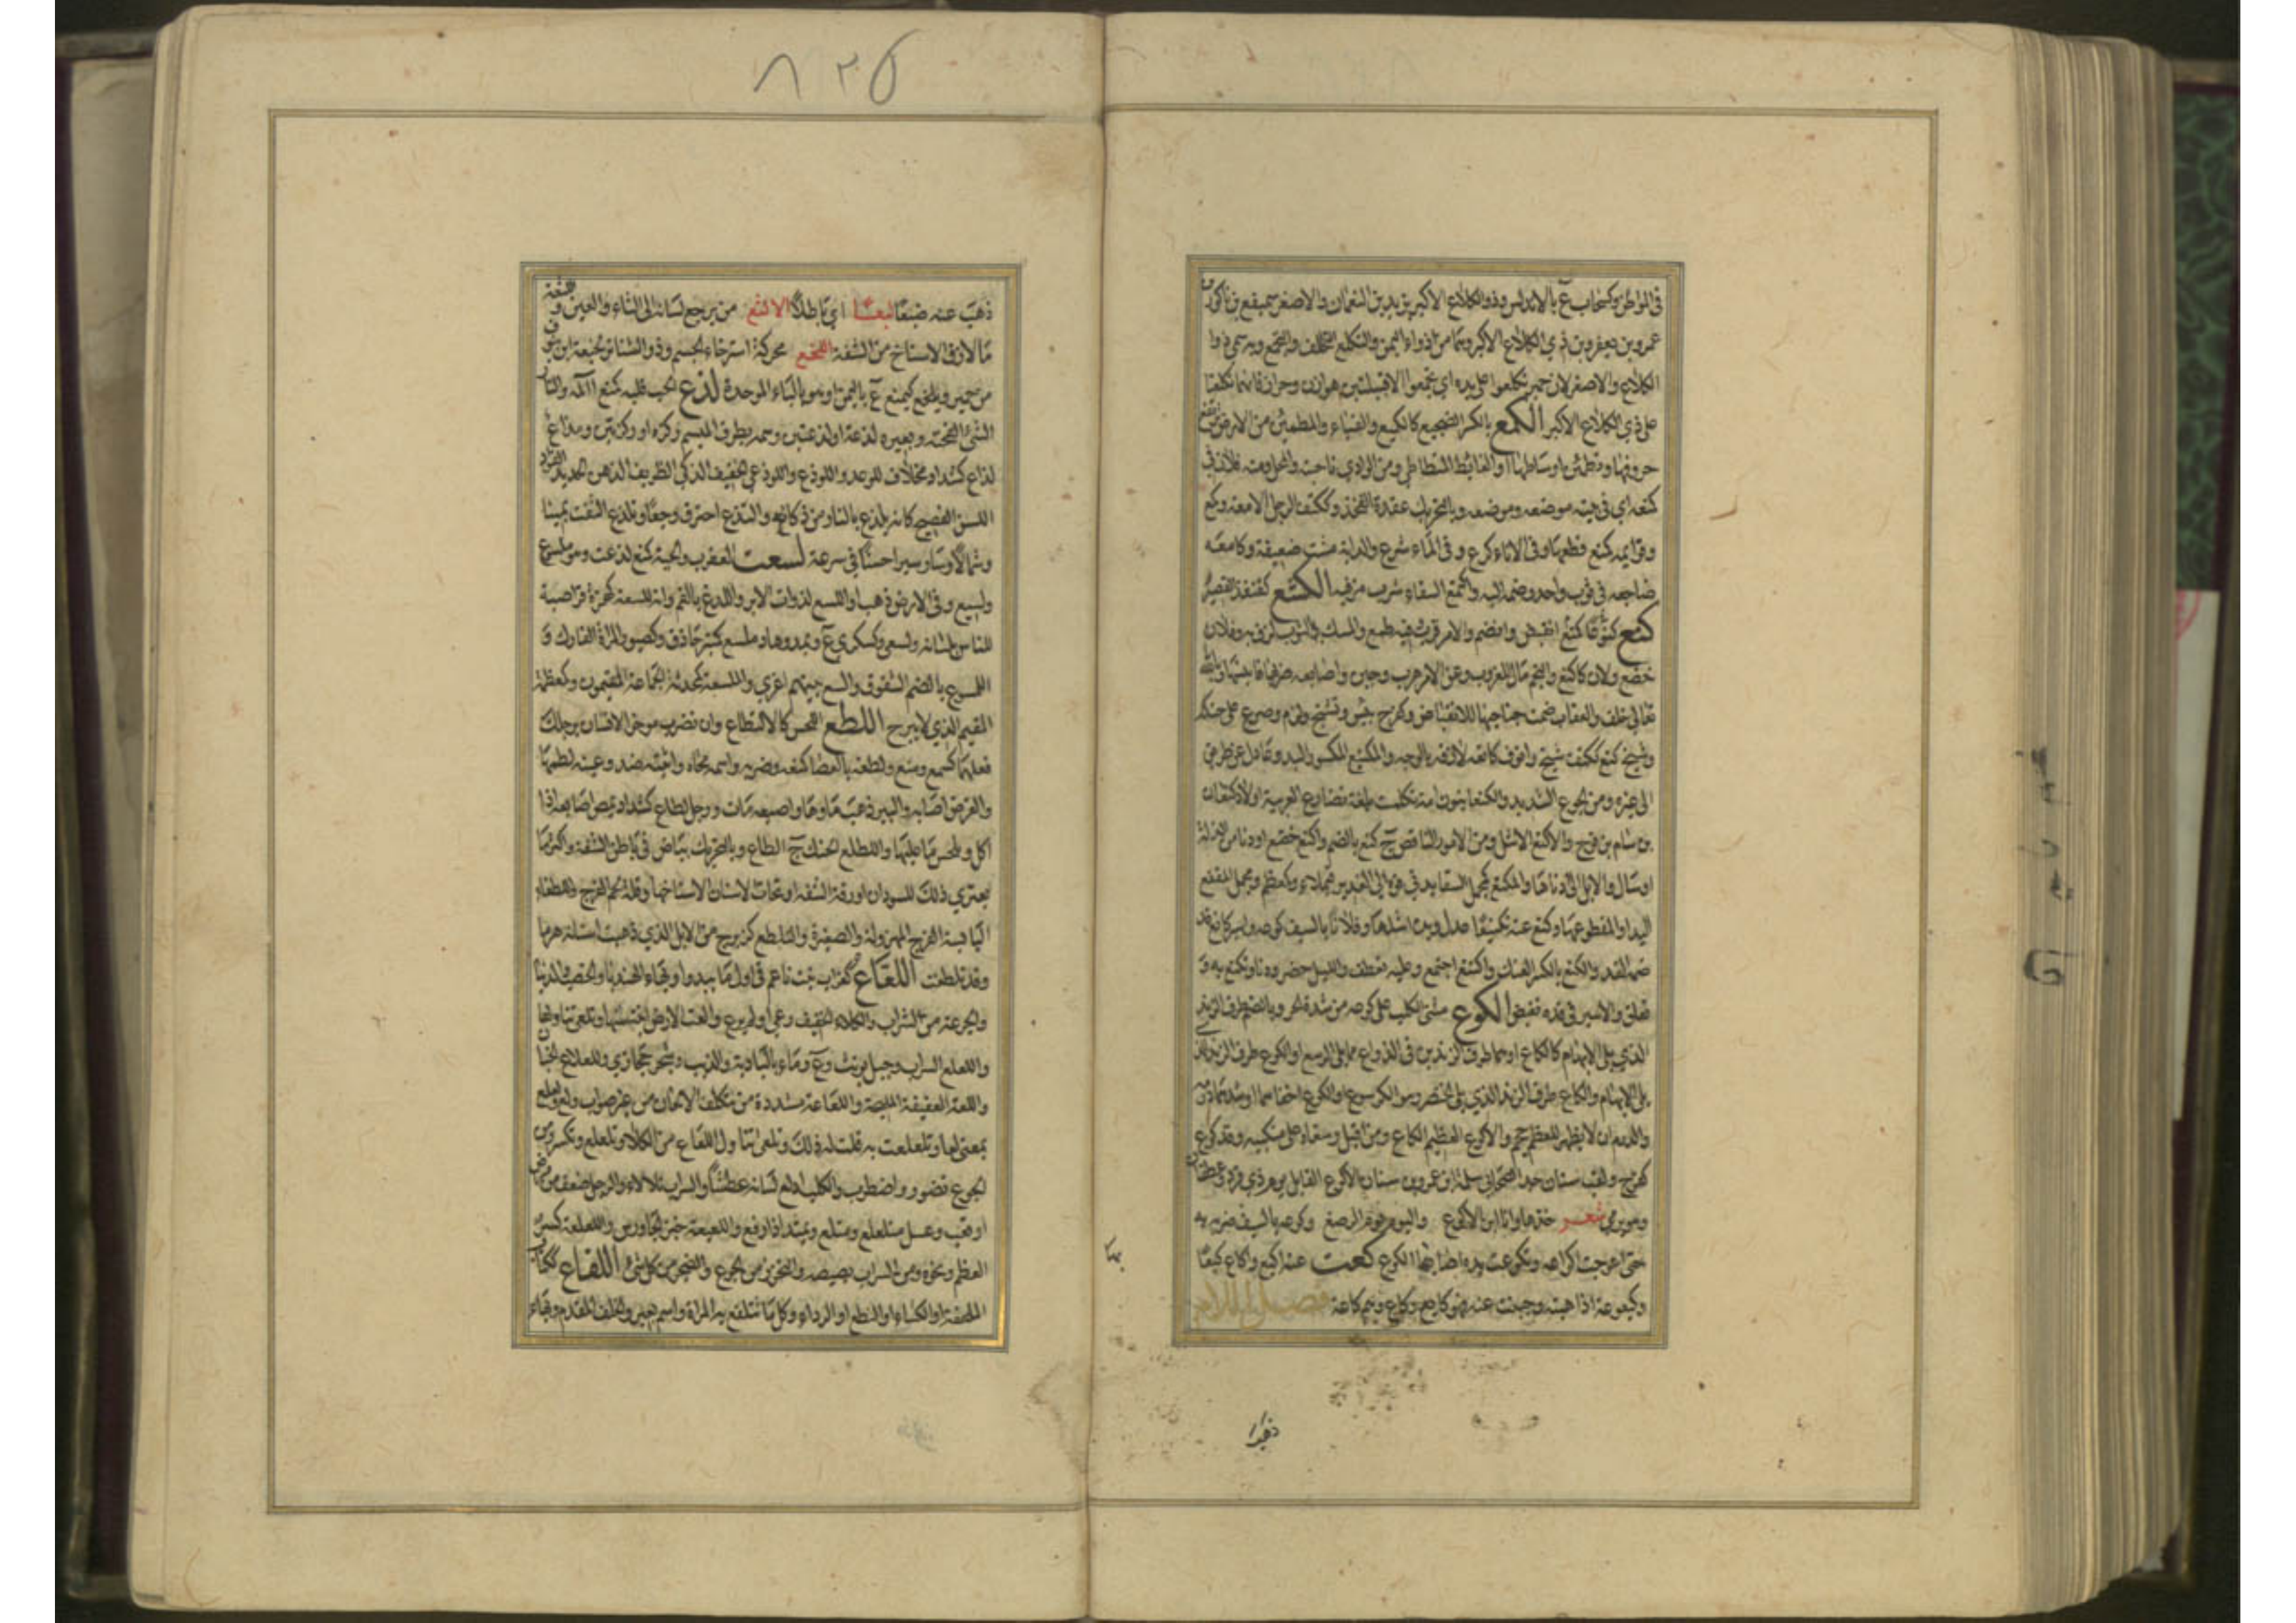 في المواطن وكسحاب ع بالاندلس وذو الكلاع الاكبر يزيد بن النعمان والاصغر سميفع بن ناكور
عمرو بن يعفر بن ذي الكلاع الاكبر وهما من اذواء اليمن والتكلع التحالف والتجمع وبه سمي ذو
الكلاع والاصغر لان حمير تكلعوا على يده اي تجمعوا الا قبيلتين هوازن وحراز فانهما تكلعتا
على ذي الكلاع الاكبر الكمع بالكسر الضجيع كالكميع والمطمئن من الارض ترتفع
حروفها وتطمئن اوساطها او الغائط المتطاطئ ومن الوادي ناحيته والمحل ومنه فلان في
كمعه اي في بيته موضعه وموضعه وبالتحريك ككتف الرجل الامعة وكمع
قوايمه كمنع قطعها وفي الاناء كرع و في الماء شرع والدابة مشت ضعيفة وكامعه
ضاجعه في ثوب واحد وضمه اليه واكتمع السقاء شرب من فيه الكنتع كقنفذ القصير
كنع كنوعا انقبض وانضم والامر قرب فيه طمع والمسك بالثوب لزق به وفلان
خضع ولان كاكنع والنجم مال للغروب وعن الامر هرب وجبن واصابعه ضربها وبالله
تعالى حلف والعقاب ضمت جناحيها للانقضاض وكفرح يبس وتشنج ولزم وصرع على حنكه
وشيخ كنع ككتف شنج وانف كانع لازق بالوجه والمكنع المكسور اليد وعادل عن طريق
الى غيره ومن الجوع الشديد والكنعانيون امة تكلمت بلغة تضارع العربية اولاد كنعان
بن سام بن نوح والاكنع الاشل ومن الامور الناقص ج كنع بالضم واكنع خضع او دنا من الذلة
او سال والابل الى ادناها والمكنع كمجمل السقاء يدني فوه الى الغدير فيملاء وكمعظم ومجمل المقفع
اليد او المقطوعها وكنع عنه تكنيعا عدل ويده اشلها وفلانا بالسيف كوعه واسير كانع قد
ضمه القد والكنع بالكسر واكتنع اجتمع وعليه تعطف والليل حضر ودنا وتكنع به
تعلق والاسير في قده تقبض الكوع مشي الكلب على كوعه من شدة الحر وبالضم طرف الزند
الذي يلي الابهام كالكاع او هما طرفا الزندين في الذراع مما يلي الرسغ او الكوع طرف الزند الذي
يلي الابهام والكاع طرف الزند الذي يلي الخنصر وهو الكرسوع او الكوع اخفاهما واشدهما
ان لا يظهر للعظم حجم والاكوع العظيم الكاع ومن اقبل رسغاه على منكبيه وقد كوع
كفرح ولقب سنان جد الصحابي سلمة بن عمرو بن سنان بالاكوع القايل يوم ذي قرد
وهو يرمي شعر خذها وانا ابن الاكوع واليوم يوم الرضع وكوعه بالسيف ضربه به
حتى اعوجت اكواعه وتكوعت يده اصابها الكوع كعت عنه اكيع واكاع كيعا
وكيعوعة اذا هبته وجبنت عنه فهو كايع وكاع وهم كاعة فصل اللام
ذهب عنه ضبعا لبعا اي باطلا الالثع من يرجع لسانه الى الثاء والعين
ما لازق الاسناخ من الشفة اللخع محركة استرخاء الجسم وذو الشناتر لخيعة ابن
من حمير ويلخع كيمنع ع باليمن او هو بالباء الموحدة لذع الحب قلبه كمنع آلمه والنار
الشئ لفحته وبعيره لذعة او لذعتين وسمه بطرف الميسم ركزة او ركزتين ومذاع
لذاع كشداد مخلاف للوعد واللوذع واللوذعي الخفيف الذكي الظريف الذهن الحديد الفؤاد
اللسن الفصيح كانه يلذع بالنار من ذكائه والتذع احترق وجعا وتلذع التفت يمينا
وشمالا وسار سيرا حسنا في سرعة لسعت العقرب والحية كمنع لدغت وهو ملسوع
ولسيع و في الارض ذهب او اللسع لذوات الابر واللدغ بالفم وانه للسعة كهمزة قراصة
للناس بلسانه ولسعى كسكرى ع ويمد وهاد ملسع كمنبر حاذق وكصبور المراة الفارك و
اللسوع بالضم الشقوق والسع بينهم اغرى والملسعة كمحدثة الجماعة المقيمون وكمعظمة
المقيم الذي لا يبرح اللطع اللحس كالالتطاع وان تضرب موخر الانسان برجلك
فعلهما كسمع ومنع ولطعه بالعصا كمنعه ضربه واسمه محاه واثبته ضد وعينه لطمها
والغرض اصابه والبير ذهب ماوها واصبعه مات ورجل لطاع كشداد يمص اصابعه اذا
اكل ويلحس ما عليها واللطع الحنك ج الطاع وبالتحريك بياض في باطن الشفة واكثر ما
يعتري ذلك السودان او رقة الشفة او تحات الاسنان الا اسناخها وقلة لحم الفرج واللطعاء
اليابسة الفرج المهزولة والصغيرة والتلطع كزبرج من الابل الذي ذهبت اسنانه هرما
وقد تلطعت اللعاع كغراب نبت ناعم في اول ما يبدو او بهاء الهندبا والخصب والدنيا
والجرعة من الشراب والكلاء الخفيف رعي او لم يرع والعت الارض انبتتها وتلعى تناولها
واللعلع السراب وجبل يونث وع وماء بالبادية والذيب وشجر حجازي واللعلاع الجبان
واللعة العفيفة المليحة واللعاعة مشددة من يتكلف الالحان من غير صواب
بمعنى لعا وتلعلعت به قلت له ذلك وتلعى تناول اللعاع من الكلاء وتلعلع تكسر ومن
الجوع تضور واضطرب والكلب دلع لسانه عطشا والسراب تلالاء والرجل ضعف من مرض
او تعب وعسل متلعلع ومتلع ويمتد اذا رفع واللعيعة خبز الجاورس واللعلعة كسر
العظم ونحوه ومن السراب بصيصه والتحزن من الجوع والتضجر من كل شئ اللفاع ككتاب
الملحفة او الكساء او النطع او الرداء وكل ما تتلفع به المراة واسم بعير والخلف المقدم وبهاء